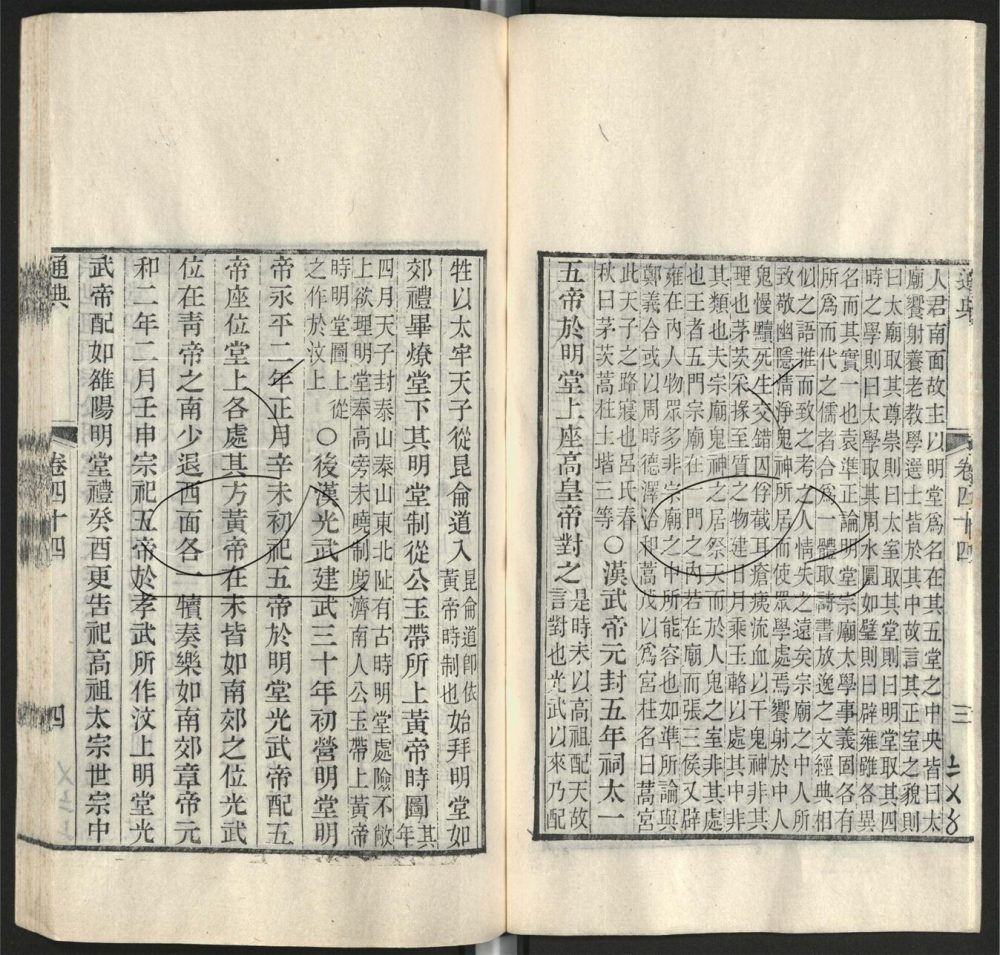 通典
卷四十四
三
人君南面故主以明堂爲名在其五堂之中央皆曰太
廟饗射養老教學選士皆於其中故言其正室之貌則
曰太廟取其尊崇則曰太室取其堂則曰明堂取其四
時之學則曰太學取其周水圜如璧則曰辟雍雖各異
名而其實一也袁準正論明堂宗廟太學事義固各有
所爲而代之儒者合爲一體取詩書放逸之文經典相
似之語推而致之考之人情失之遠矣宗廟之中人所
致敬幽隱清淨鬼神所居而使眾學處焉饗射於中人
鬼慢黷死生交錯囚俘截耳瘡痍流血以干鬼神非其
理也茅茨采椽至質之物建日月乘玉輅以處其中非
其類也夫宗廟鬼神之居祭天而於人鬼之室非其處
也王者五門宗廟在一門之內若在廟而張三侯又辟
雍在內人物眾多非宗廟之中所能容也如準所論與
鄭義合或以周時德澤洽和蒿茂以爲宮柱名曰蒿宮
此天子之路寢也呂氏春
秋曰茅茨蒿柱土堦三等
〇漢武帝元封五年祠太一
五帝於明堂上座高皇帝對之
是時未以高祖配天故
言對也光武以來乃配
牲以太牢天子從昆侖道入
昆侖道即依
黃帝時制也
始拜明堂如
郊禮畢燎堂下其明堂制從公玉帶所上黃帝時圖
其
年
四月天子封泰山泰山東北阯有古時明堂處險不敞
上欲理明堂奉高旁未曉制度濟南人公玉帶上黃帝
時明堂圖上從
之作於汶上
〇後漢光武建武三十年初營明堂明
帝永平二年正月辛未初祀五帝於明堂光武帝配五
帝座位堂上各處其方黃帝在未皆如南郊之位光武
位在青帝之南少退西面各一犢奏樂如南郊章帝元
和二年二月壬申宗祀五帝於孝武所作汶上明堂光
武帝配如雒陽明堂禮癸酉更告祀高祖太宗世宗中
通典
卷四十四
四